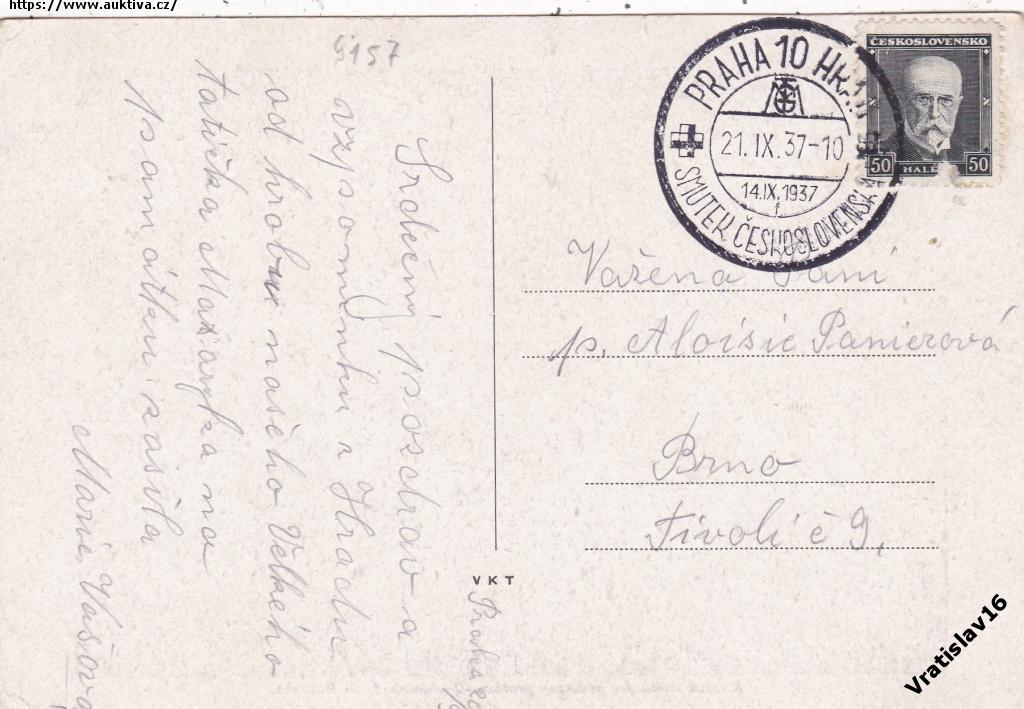 https://www.auktiva.cz/
9157
Srdečný pozdrav a
vzpomínku z Hradu
od hrobu našeho Velkého
tatíčka Masaryka na
památku zasíla
Marie Vašová
PRAHA 10
21.IX.37-10
14.IX.1937
f
SMUTEK ČESKOSLOVENSKA
ČESKOSLOVENSKO
50 HALÉ 50
Vážená Paní
p. Aloisie Panierová
Brno
Tivoli č 9,
VKT
Praha
Vratislav16